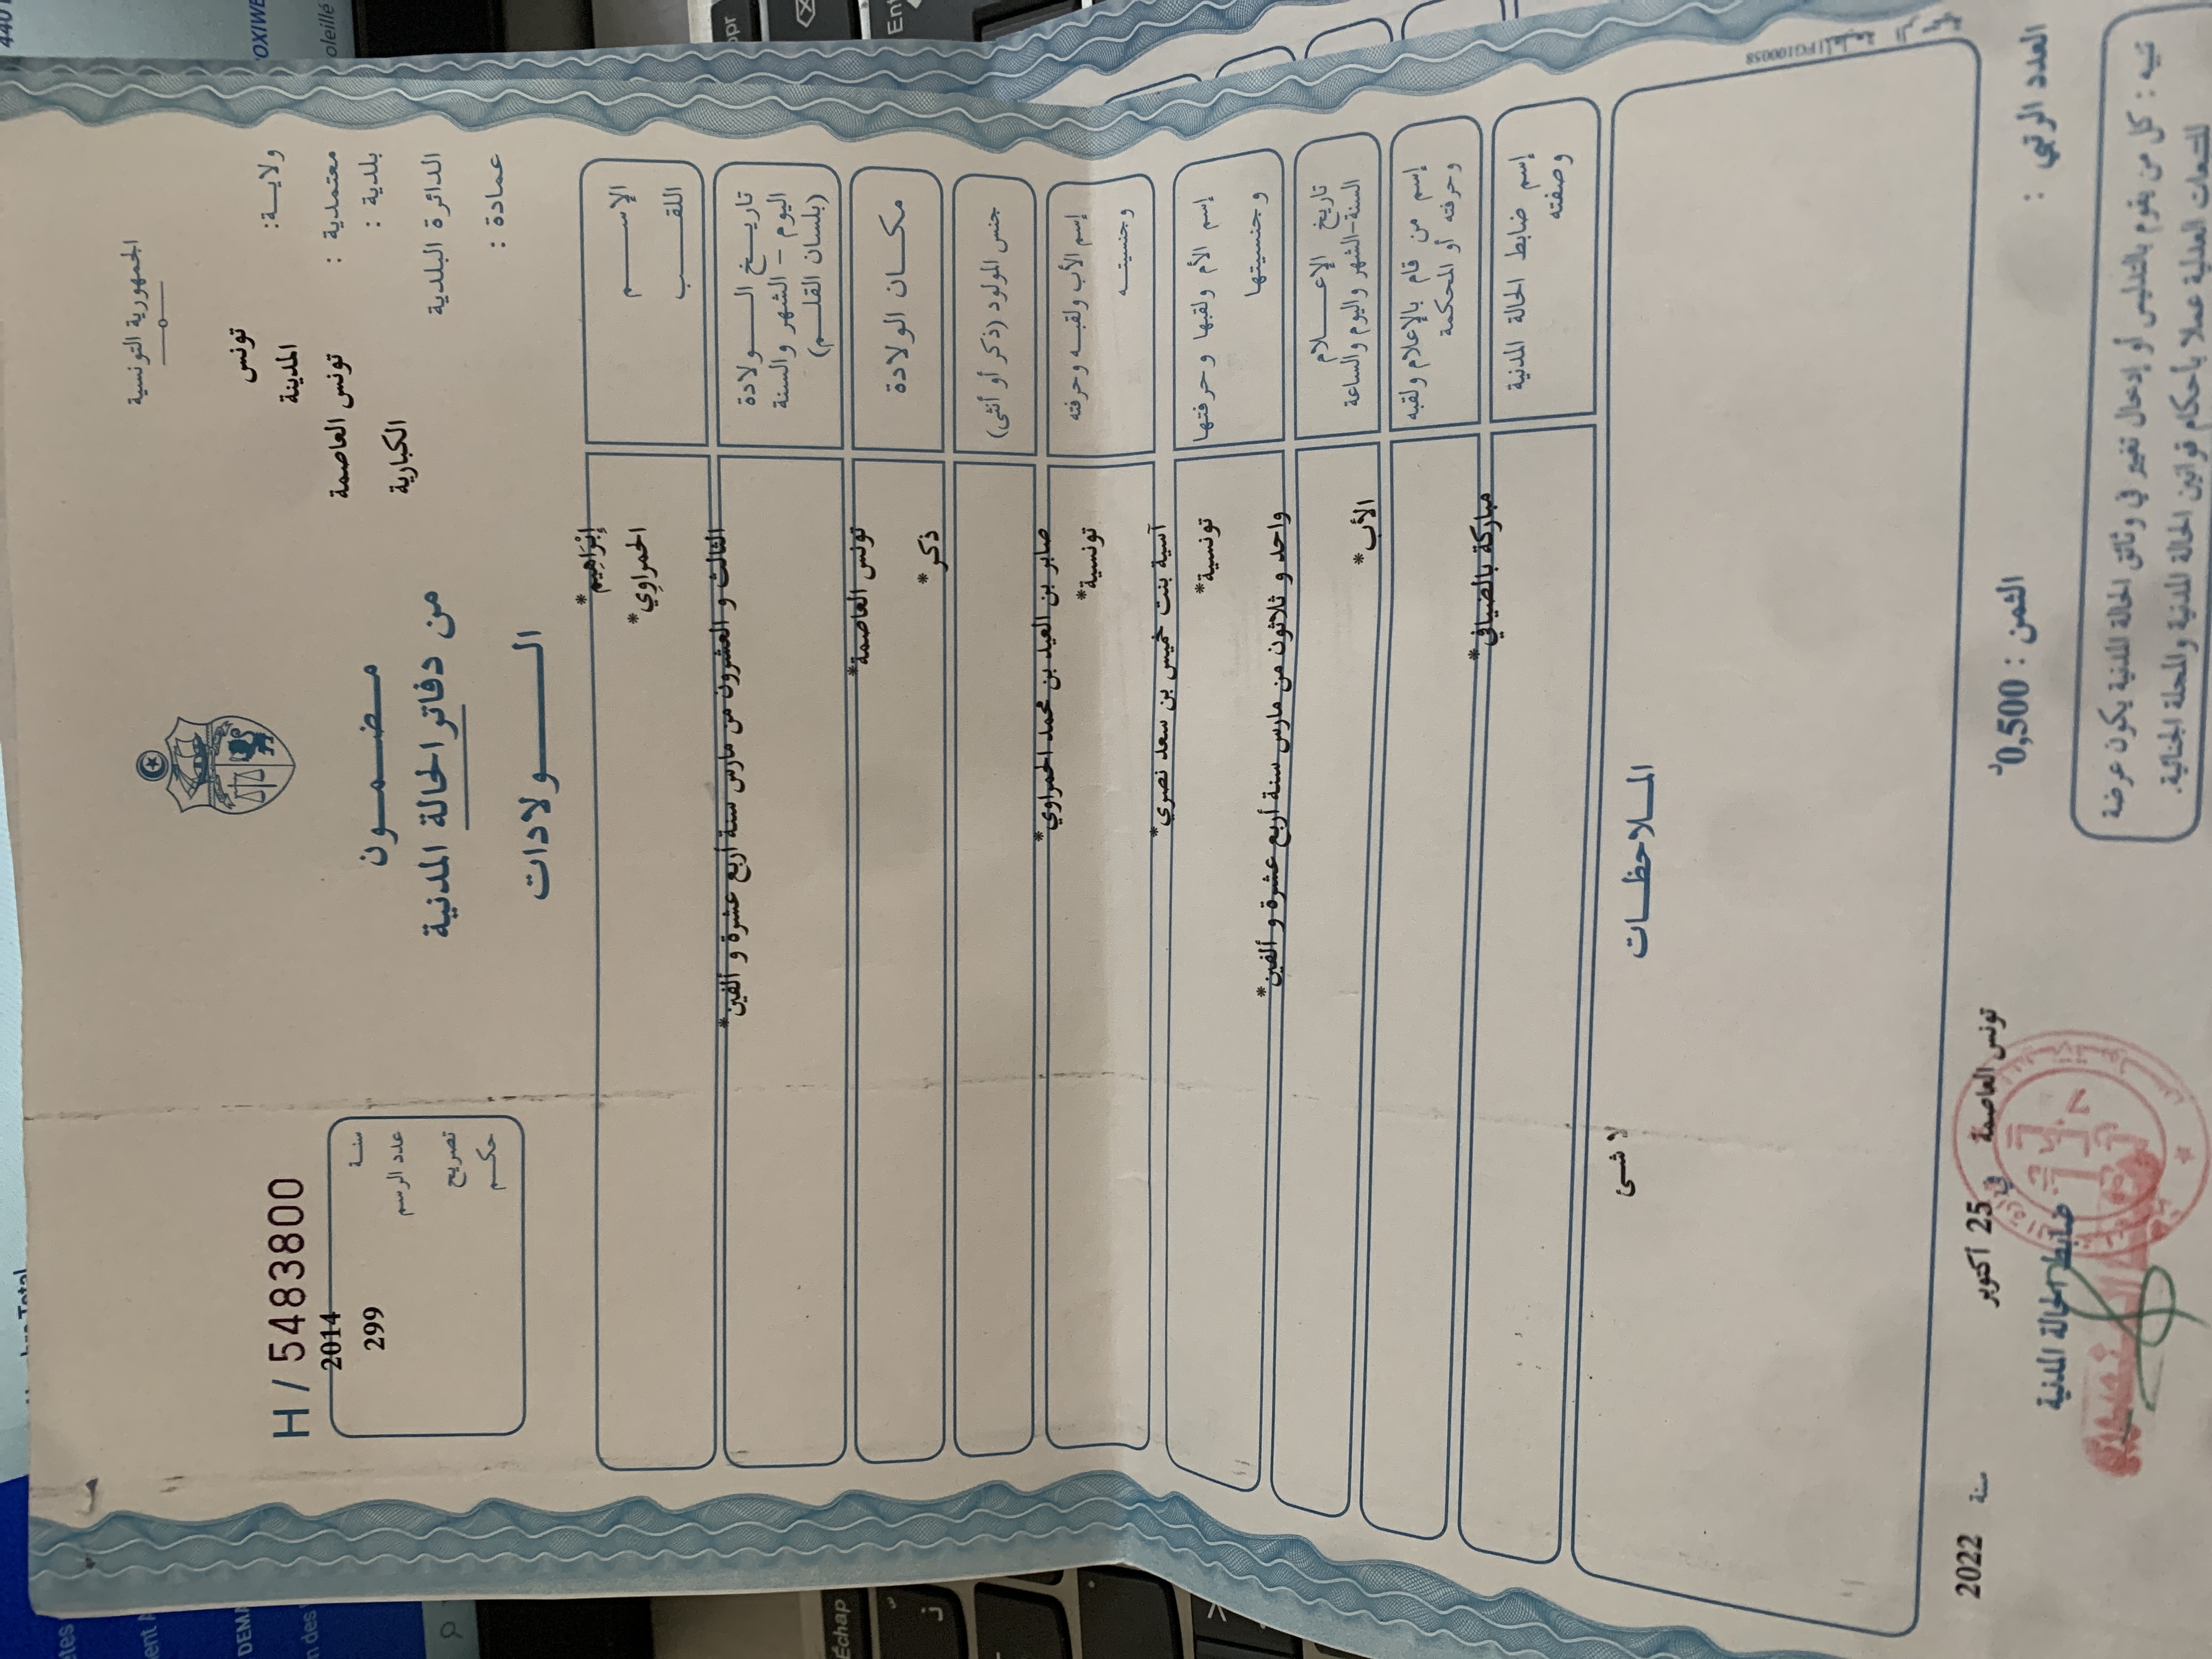 الجمهورية التونسية
ولاية: تونس
معتمدية : المدينة
بلدية : تونس العاصمة
الدائرة البلدية الكبارية
عمادة :
مضمون
من دفاتر الحالة المدنية
الولادات
H / 5483800
سنة 2014
عدد الرسم 299
تصريح
حكم
الإسم إبْرَاهِيم*
اللقب الحمراوي*
تاريخ الولادة
اليوم - الشهر والسنة
(بلسان القلم)
الثالث و العشرون من مارس سنة أربع عشرة و ألفين*
مكان الولادة
تونس العاصمة*
جنس المولود (ذكر أو أنثى)
ذكر*
إسم الأب ولقبه وحرفته
وجنسيته
صابر بن العيد بن محمد الحمراوي*
تونسية*
إسم الأم ولقبها وحرفتها
وجنسيتها
آسية بنت خميس بن سعد نصري*
تونسية*
تاريخ الإعلام
السنة-الشهر واليوم والساعة
واحد و ثلاثون من مارس سنة أربع عشرة و ألفين*
إسم من قام بالإعلام ولقبه
وحرفته أو المحكمة
الأب*
إسم ضابط الحالة المدنية
وصفته
مباركة بالضيافي*
الملاحظات
لا شئ
تونس العاصمة في 25 أكتوبر سنة 2022
ضابط الحالة المدنية
العدد الرتبي :
الثمن : 0,500د
تنبيه : كل من يقوم بالتدليس أو إدخال تغيير في وثائق الحالة المدنية يكون عرضة
للتتبعات العدلية عملا بأحكام قوانين الحالة المدنية والمجلة الجنائية.
Échap
DEMA